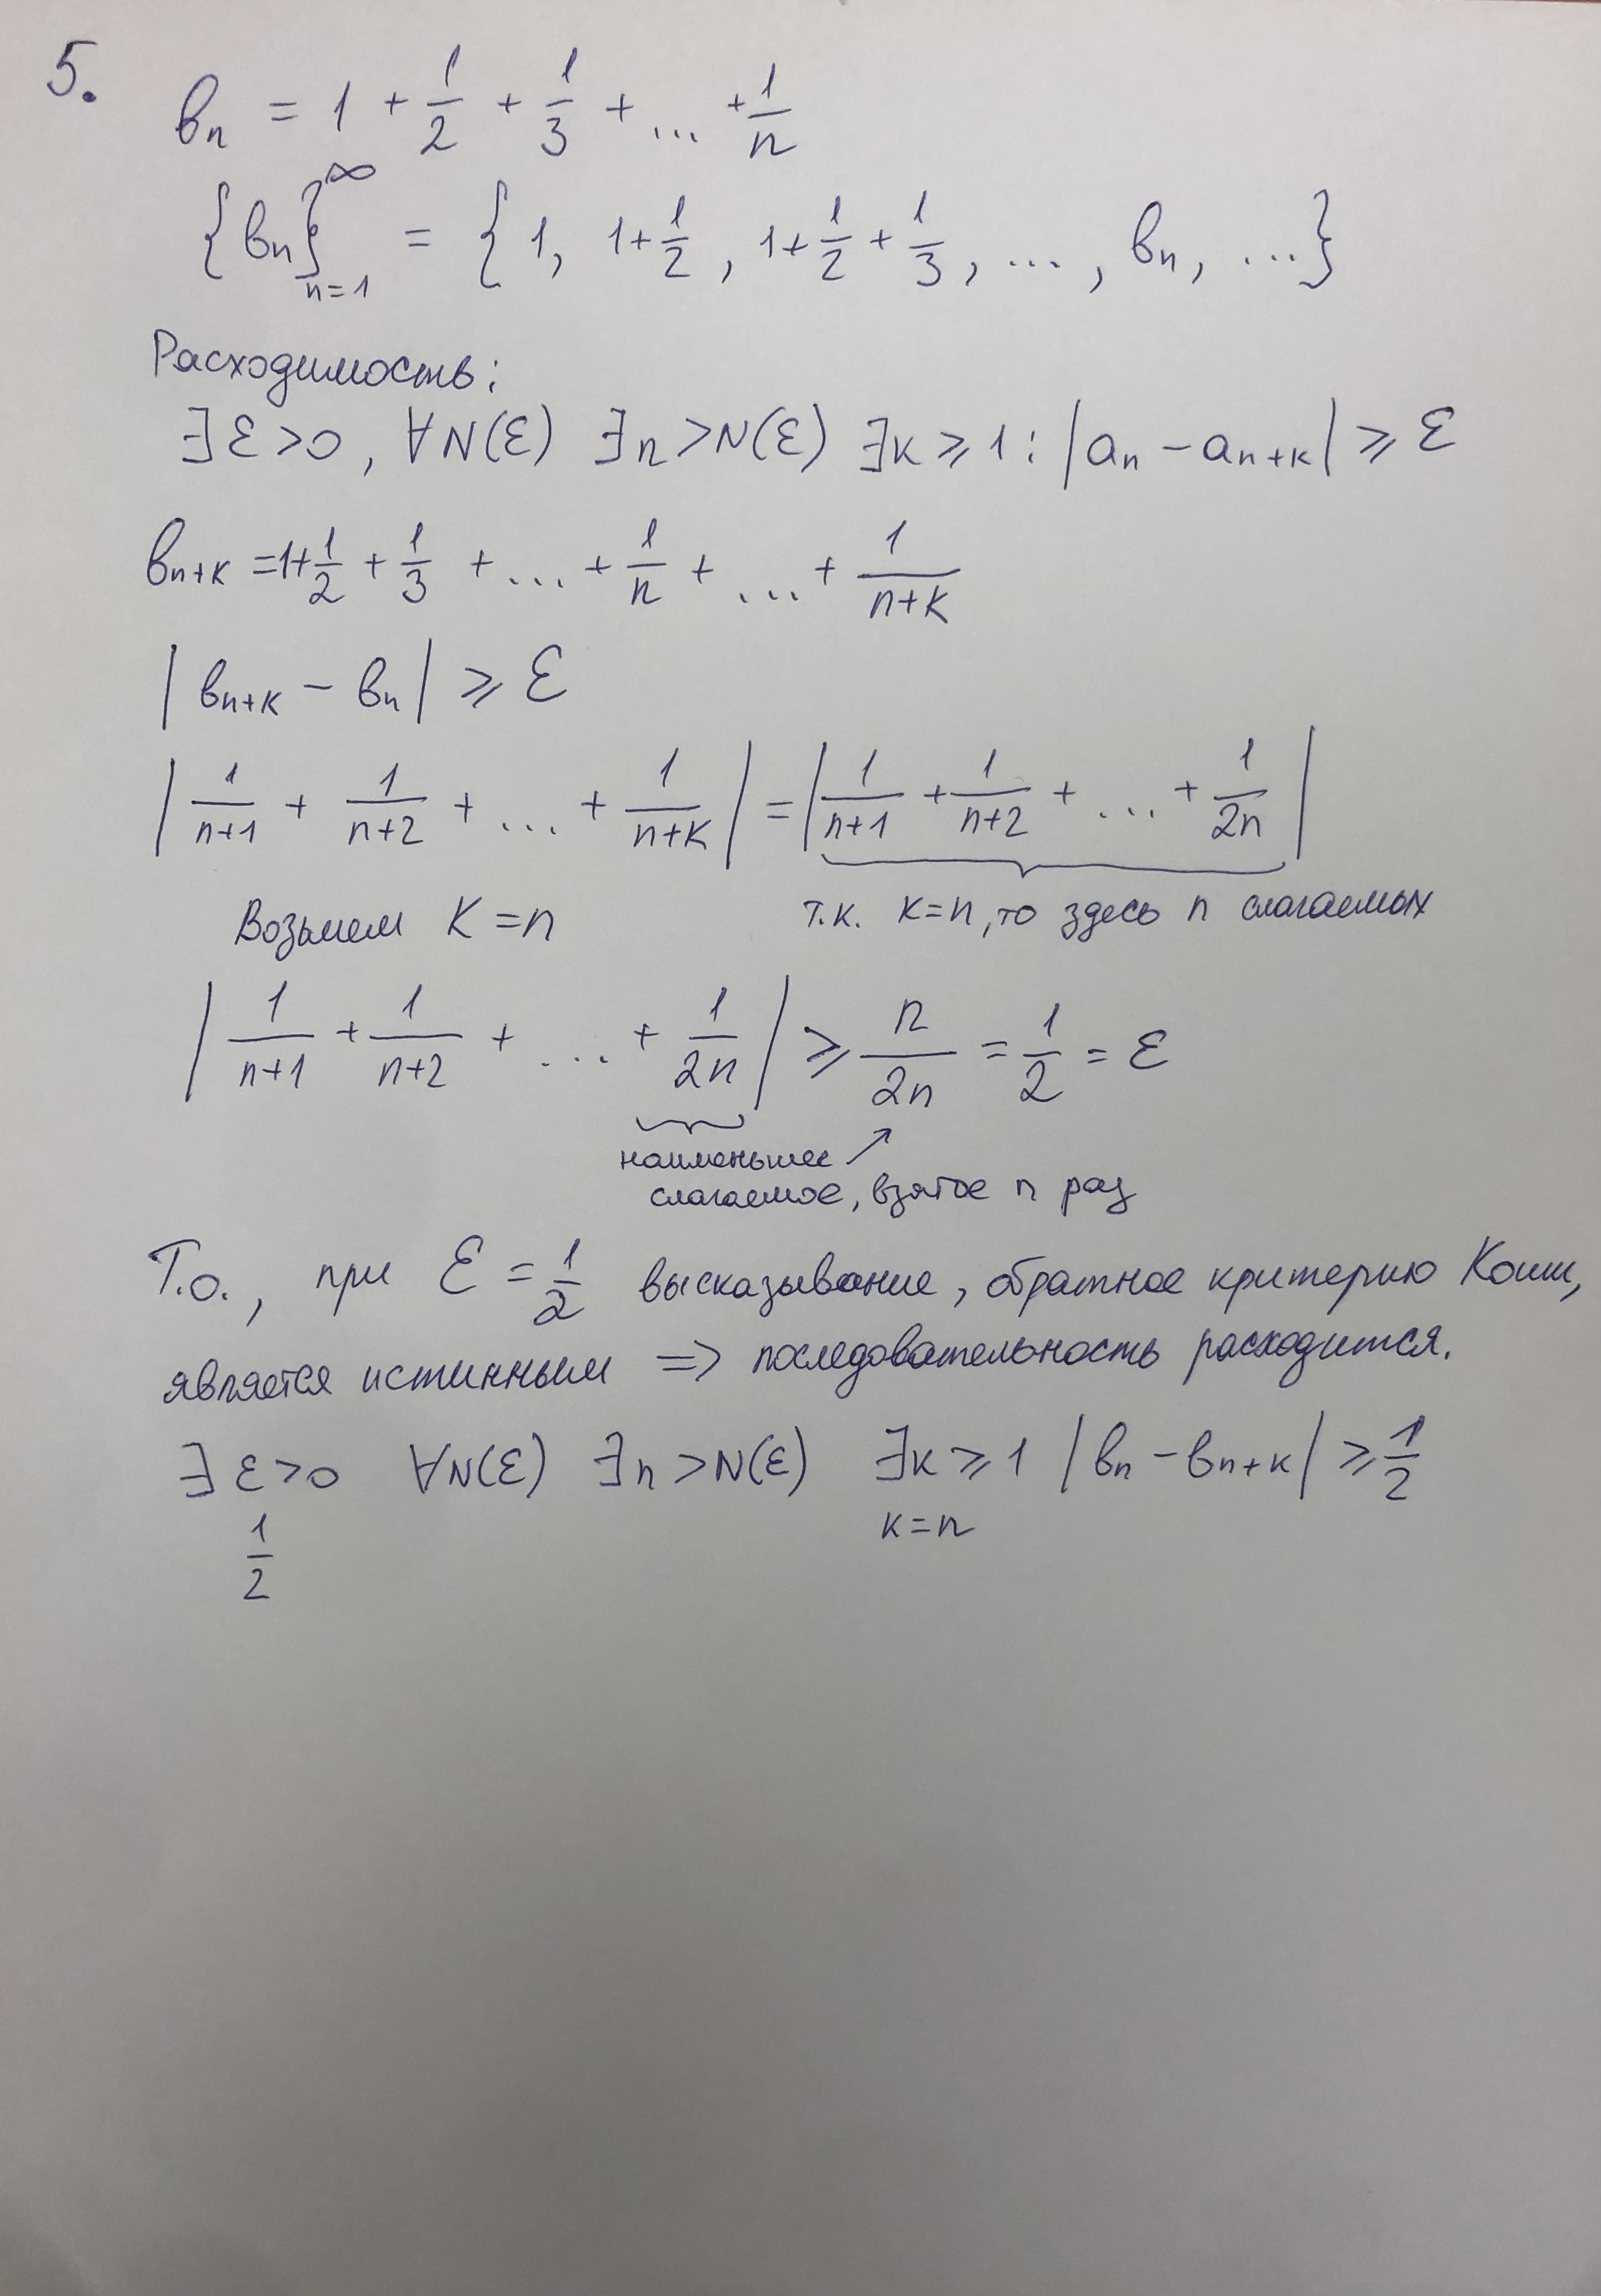 5.
bn = 1 + 1/2 + 1/3 + ... + 1/n
{bn}∞n=1 = {1, 1+1/2, 1+1/2+1/3, ..., bn, ...}
Расходимость:
∃ε>0, ∀N(ε) ∃n>N(ε) ∃k⩾1: |an − an+k| ⩾ ε
bn+k = 1+1/2 + 1/3 + ... + 1/n + ... + 1/(n+k)
|bn+k − bn| ⩾ ε
|1/(n+1) + 1/(n+2) + ... + 1/(n+k)| = |1/(n+1) + 1/(n+2) + ... + 1/2n|
Возьмем K = n т.к. k=n, то здесь n слагаемых
|1/(n+1) + 1/(n+2) + ... + 1/2n| ⩾ n/2n = 1/2 = ε
наименьшее ↗
слагаемое, взятое n раз
Т.о., при ε = 1/2 высказывание, обратное критерию Коши,
является истинным => последовательность расходится.
∃ε>0 ∀N(ε) ∃n>N(ε) ∃k⩾1 |bn − bn+k| ⩾ 1/2
1/2 k=n